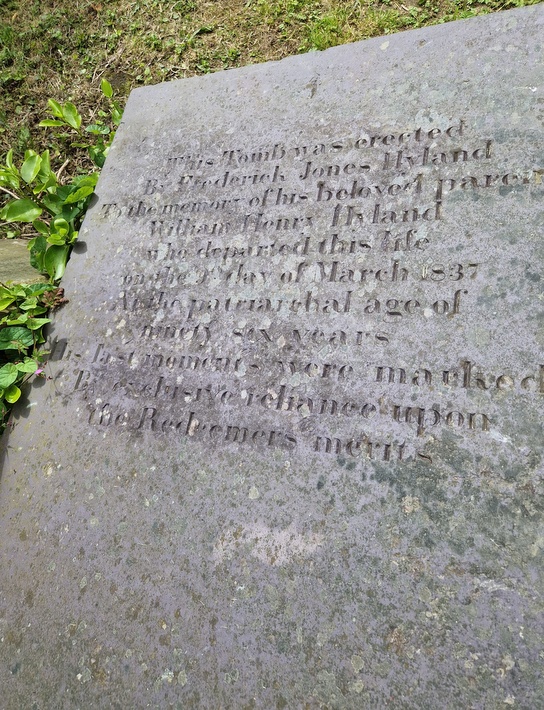 This Tomb was erected
By Frederick Jones Hyland
To the memory of his beloved paren
William Henry Hyland
who departed this life
on the day of March 1837
At the patriarchal age of
ninety six years
His last moments were marked
By exclusive reliance upon
the Redeemers merits